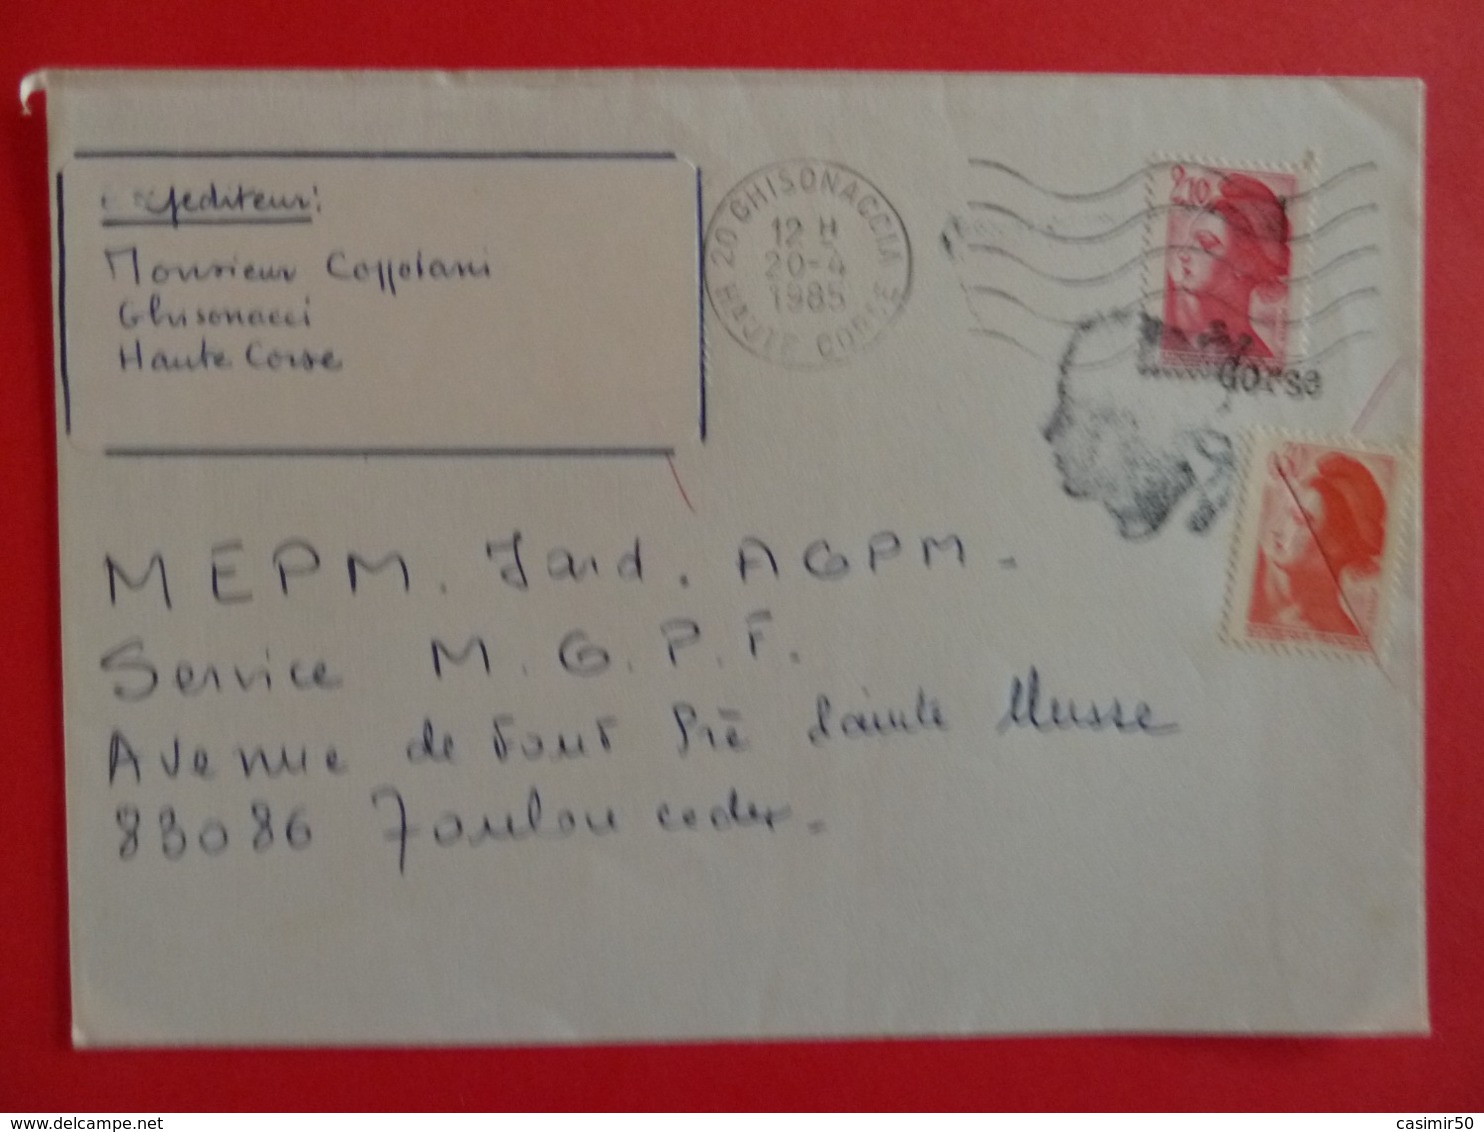 Expediteur:
Monsieur Coppolani
Ghisonacci
Haute Corse
20 GHISONACCIA
12 H
20-4
1985
HAUTE CORSE
2,10
Corse
MEPM. Jard. AGPM-
Service M.G.P.F.
Avenue de Font Pré Sainte Musse
83086 Toulon cedex-
casimir50